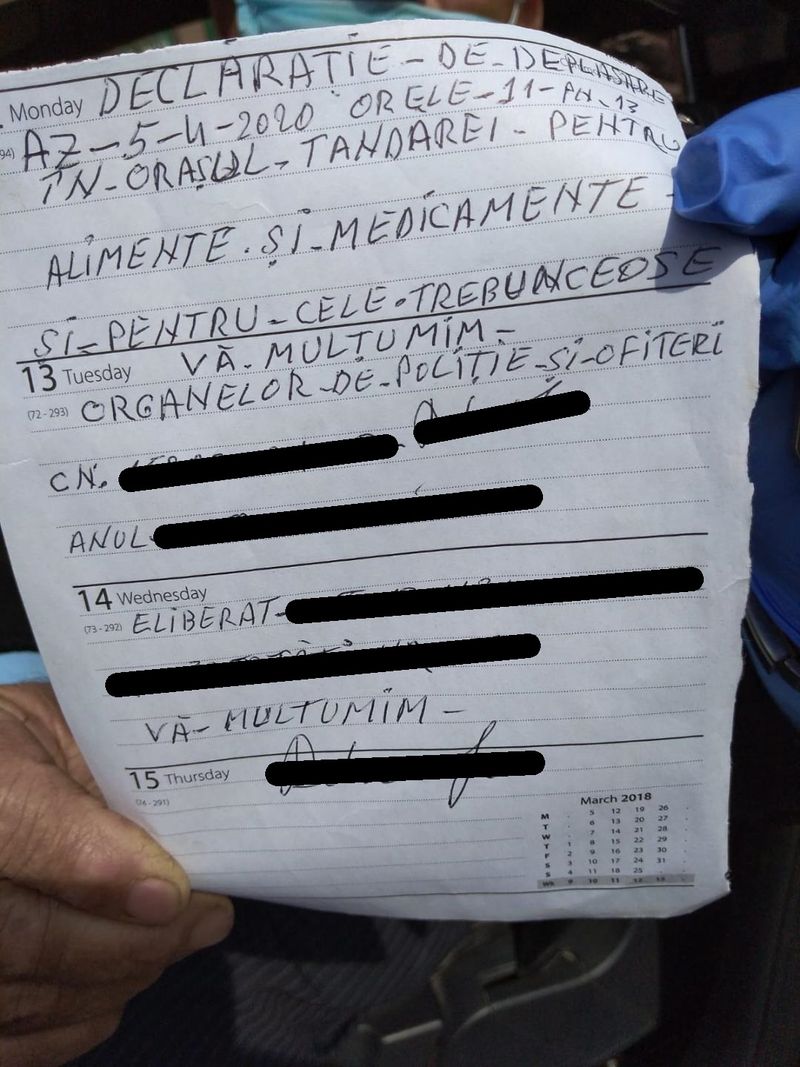 Monday DECLARATIE-DE-DEPLASARE
94) AZ-5-4-2020 ORELE-11-PN-13
ÎN-ORAȘUL-TANDAREI-PENTRU
ALIMENTE. ȘI-MEDICAMENTE-
SI-PENTRU-CELE-TREBUNCEOSE
VĂ-MULTUMIM-
13 Tuesday
(72-293) ORGANELOR-DE-POLIȚIE-SI-OFITERI
CN.
ANUL
14 Wednesday
(73-292) ELIBERAT-
VĂ-MULTUMIM-
15 Thursday
(74-291)
March 2018
M . 5 12 19 26 .
T . 6 13 20 27 .
W . 7 14 21 28 .
T 1 8 15 22 29 .
F 2 9 16 23 30 .
S 3 10 17 24 31 .
S 4 11 18 25 . .
WK 9 10 11 12 13 .